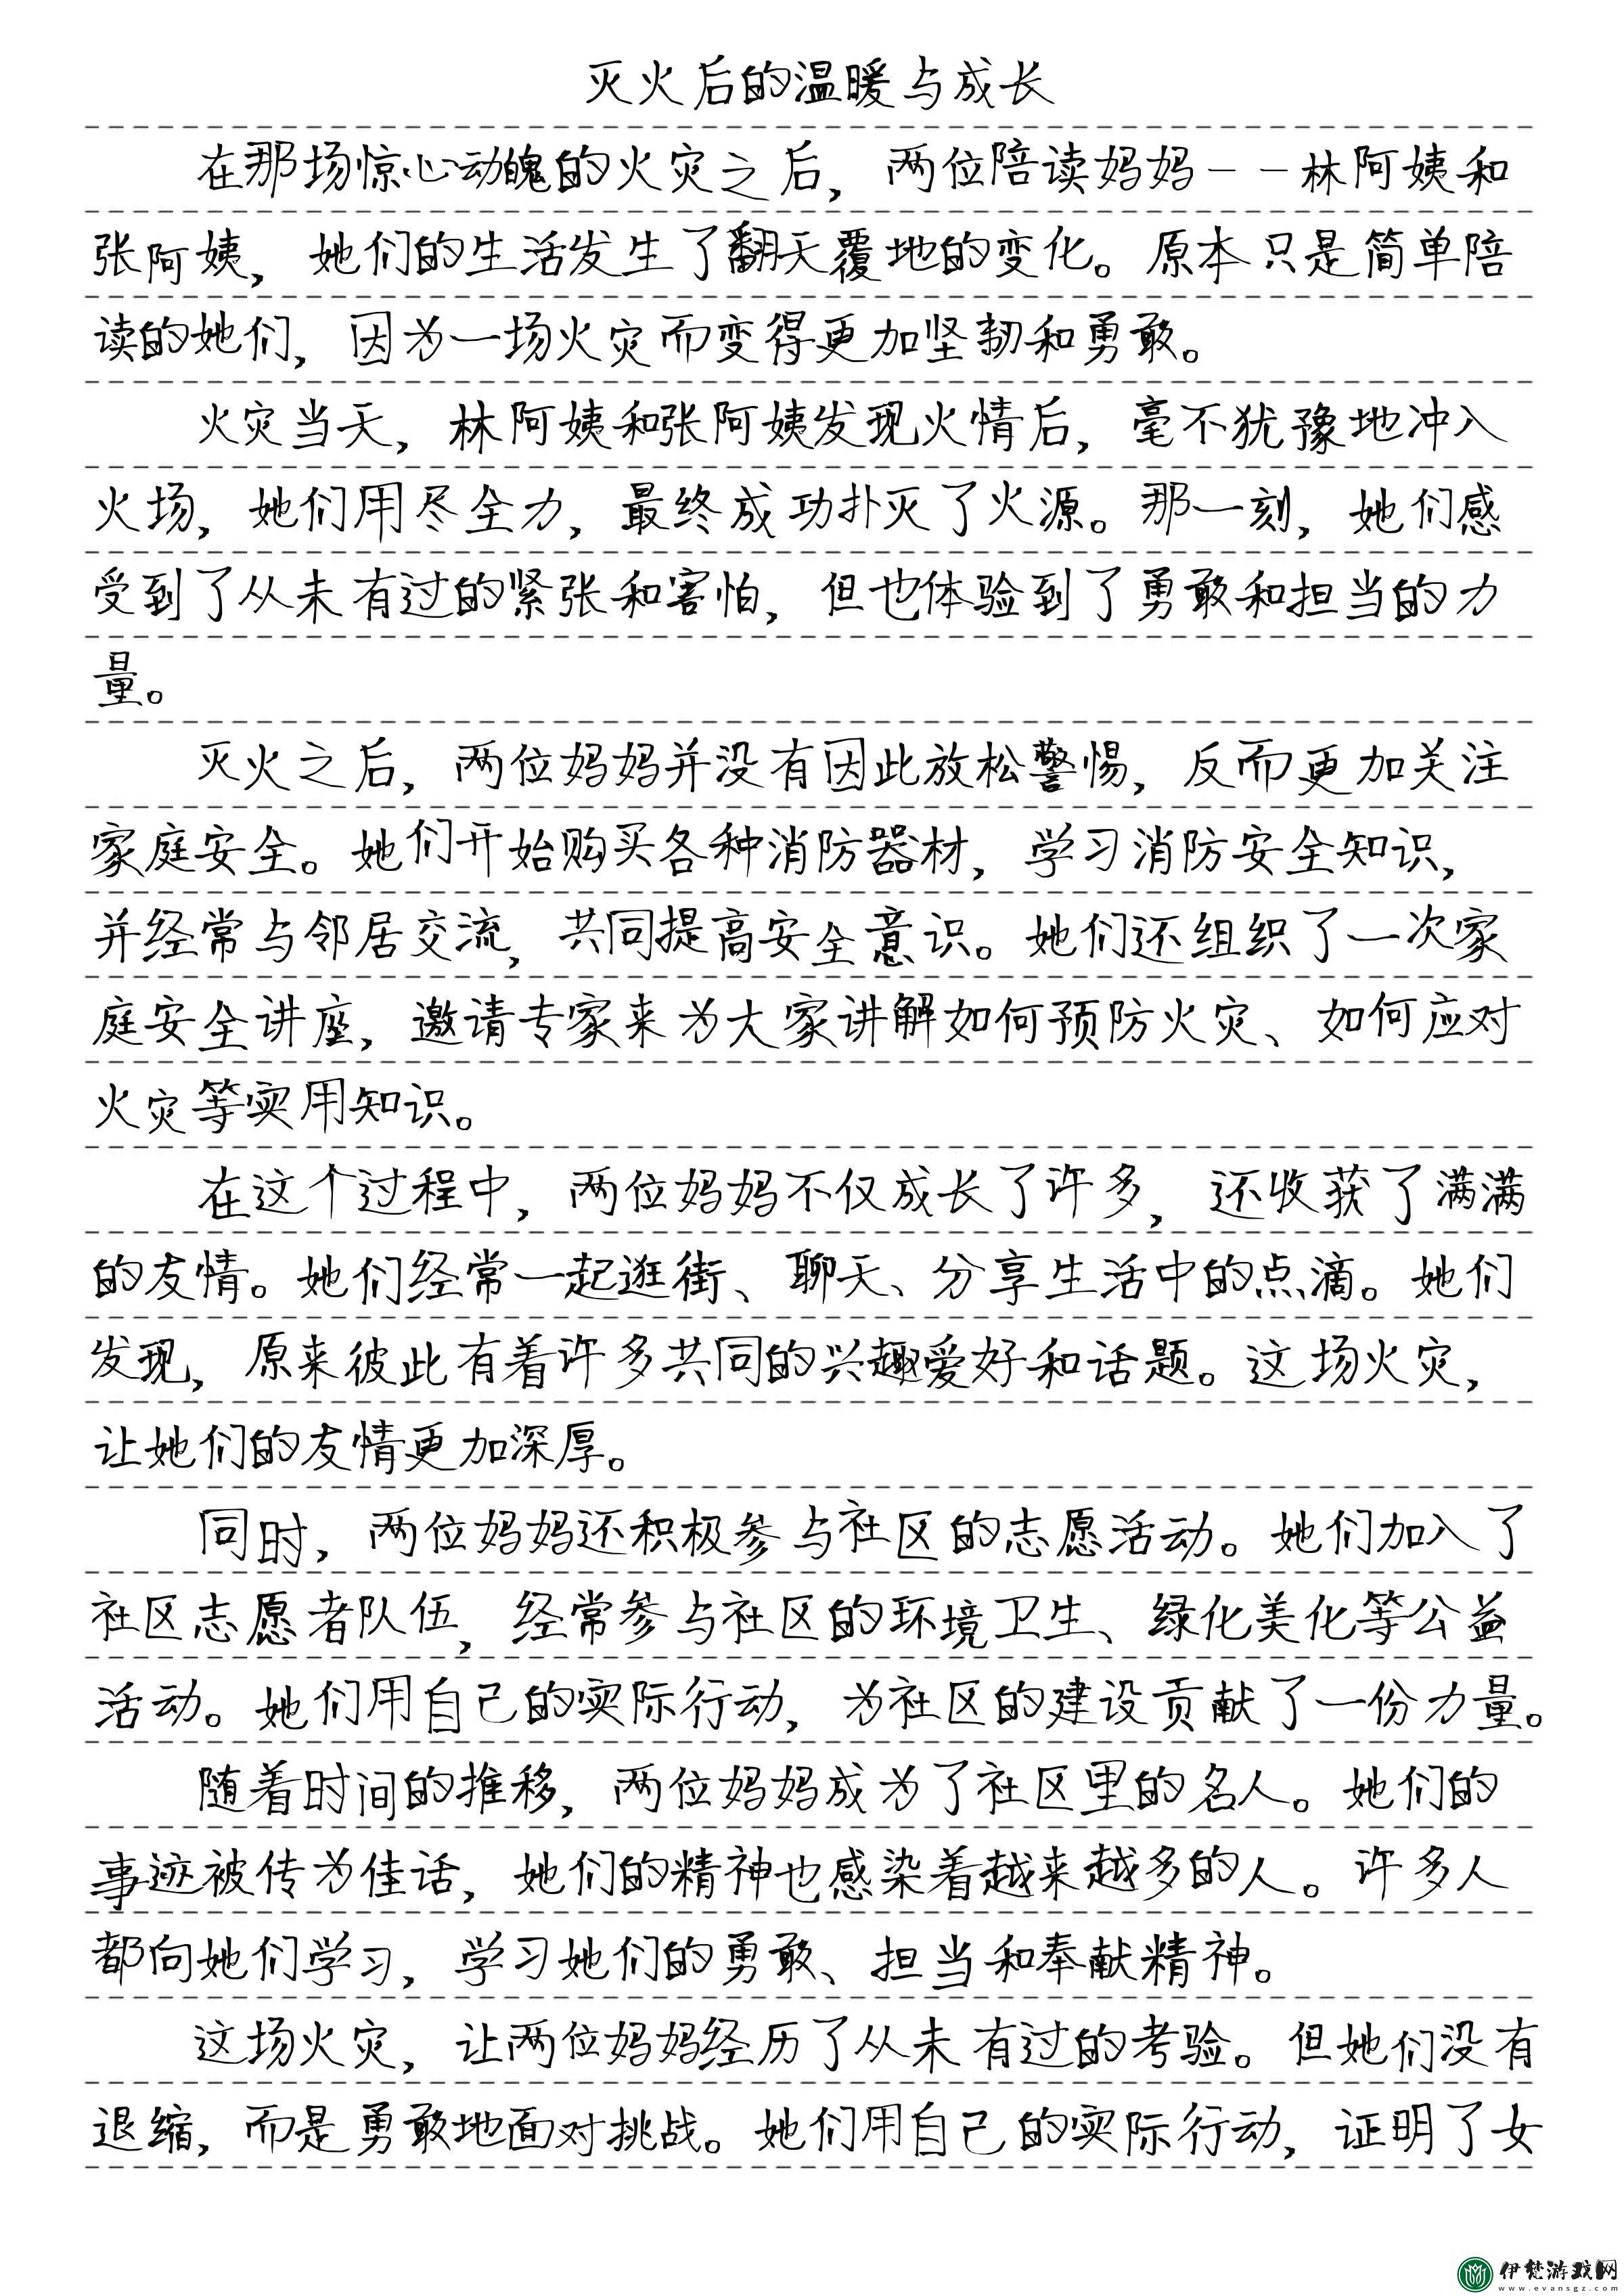 灭火后的温暖与成长
在那场惊心动魄的火灾之后，两位陪读妈妈--林阿姨和
张阿姨，她们的生活发生了翻天覆地的变化。原本只是简单陪
读的她们，因为一场火灾而变得更加坚韧和勇敢。
火灾当天，林阿姨和张阿姨发现火情后，毫不犹豫地冲入
火场，她们用尽全力，最终成功扑灭了火源。那一刻，她们感
受到了从未有过的紧张和害怕，但也体验到了勇敢和担当的力
量。
灭火之后，两位妈妈并没有因此放松警惕，反而更加关注
家庭安全。她们开始购买各种消防器材，学习消防安全知识，
并经常与邻居交流，共同提高安全意识。她们还组织了一次家
庭安全讲座，邀请专家来为大家讲解如何预防火灾、如何应对
火灾等实用知识。
在这个过程中，两位妈妈不仅成长了许多，还收获了满满
的友情。她们经常一起逛街、聊天、分享生活中的点滴。她们
发现，原来彼此有着许多共同的兴趣爱好和话题。这场火灾，
让她们的友情更加深厚。
同时，两位妈妈还积极参与社区的志愿活动。她们加入了
社区志愿者队伍，经常参与社区的环境卫生、绿化美化等公益
活动。她们用自己的实际行动，为社区的建设贡献了一份力量。
随着时间的推移，两位妈妈成为了社区里的名人。她们的
事迹被传为佳话，她们的精神也感染着越来越多的人。许多人
都向她们学习，学习她们的勇敢、担当和奉献精神。
这场火灾，让两位妈妈经历了从未有过的考验。但她们没有
退缩，而是勇敢地面对挑战。她们用自己的实际行动，证明了女
伊梵游戏网
www.evansgz.com